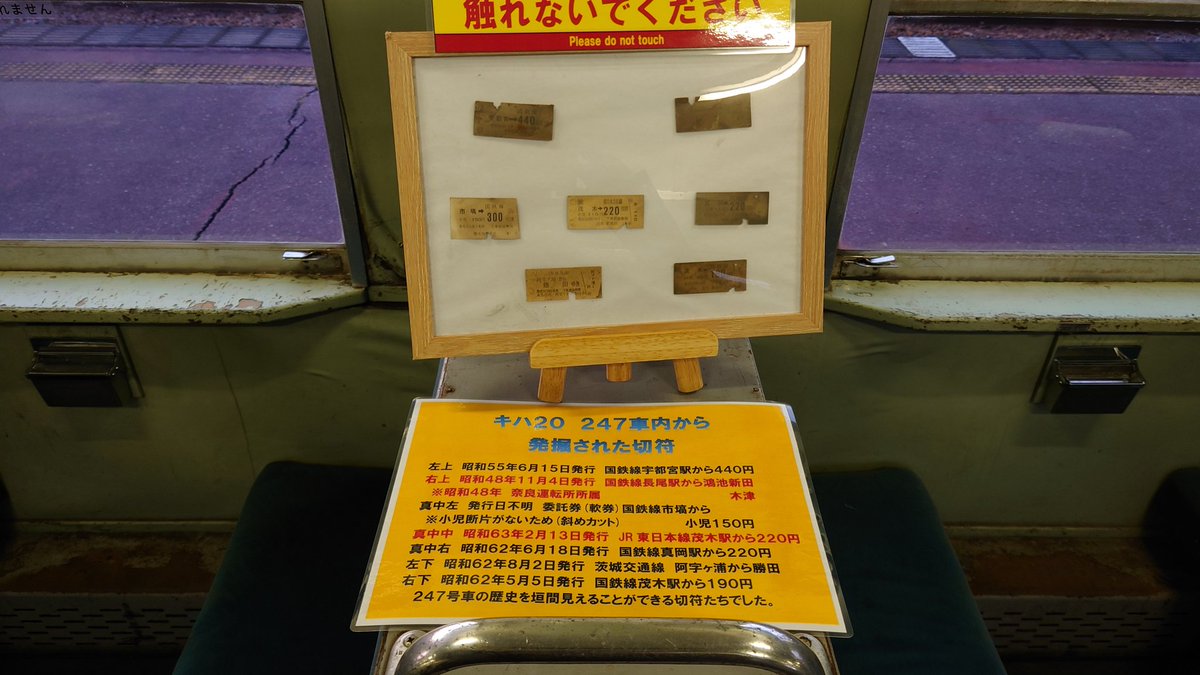 れません
触れないでください
Please do not touch
440
市塙→
300
茂木→220
220
勝田
キハ20 247車内から
発掘された切符
左上 昭和55年6月15日発行 国鉄線宇都宮駅から440円
右上 昭和48年11月4日発行 国鉄線長尾駅から鴻池新田
※昭和48年 奈良運転所所属 木津
真中左 発行日不明 委託券(軟券)国鉄線市塙から
※小児断片がないため(斜めカット) 小児150円
真中中 昭和63年2月13日発行 JR東日本線茂木駅から220円
真中右 昭和62年6月18日発行 国鉄線真岡駅から220円
左下 昭和62年8月2日発行 茨城交通線 阿字ヶ浦から勝田
右下 昭和62年5月5日発行 国鉄線茂木駅から190円
247号車の歴史を垣間見えることができる切符たちでした。